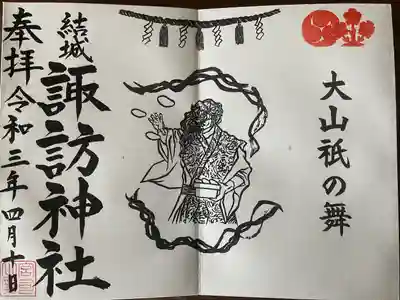 大山祇の舞
結城
諏訪神社
奉拝令和三年四月十日